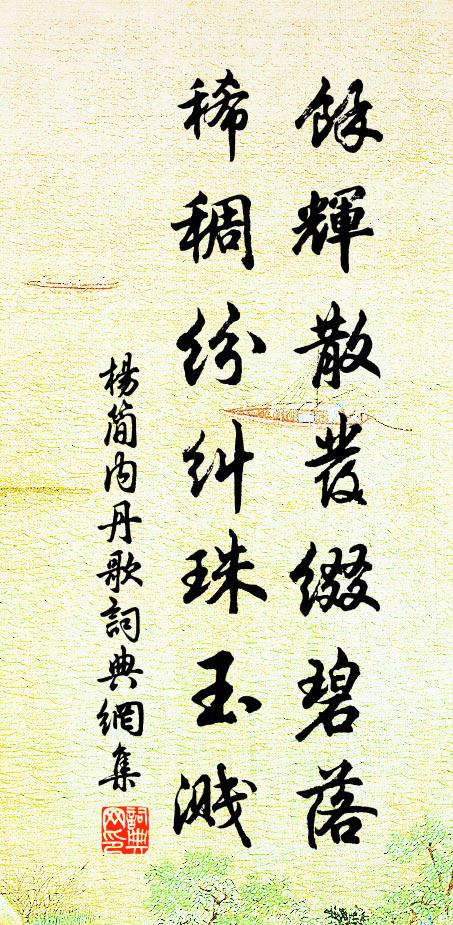 餘輝散發綴碧落
稀稠紛糾珠玉濺
楊简内丹歌詞典網集
詞典网印